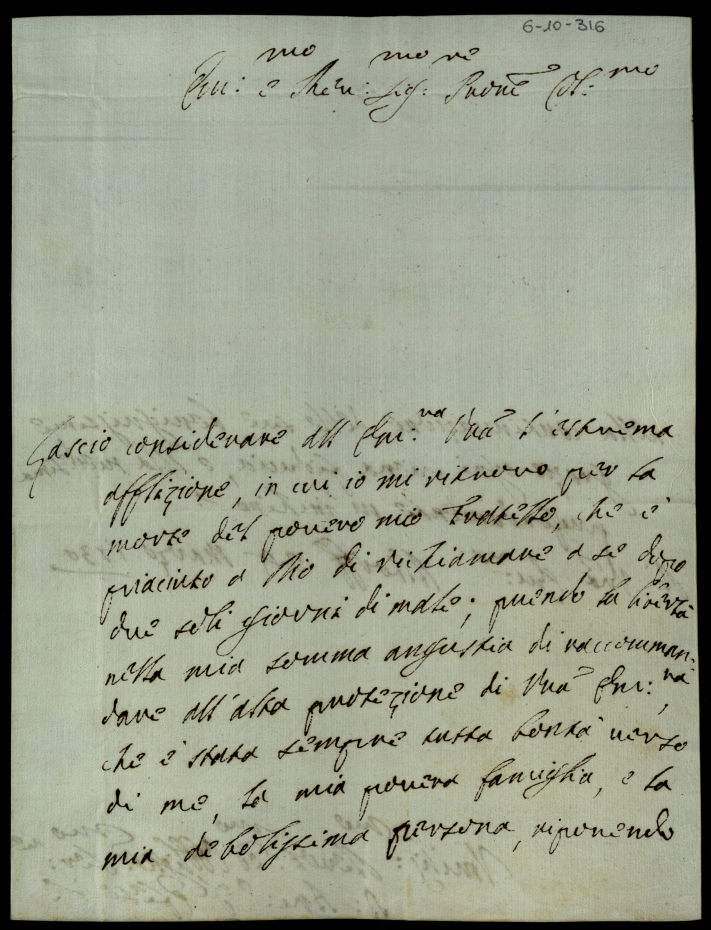 6-10-316
Em:mo e Rev:mo Sig:re Pnōne Col:mo
Lascio considerare all'Em:va Vrā l'estrema
afflizione, in cui io mi ritrovo per la
morte del povero mio Fratello, che è
piaciuto a Dio di richiamare a se dopo
due soli giorni di male; prendo la libertà
nella mia somma angustia di raccomman-
dare all'alta protezione di Vrā Em:va,
che è stata sempre tutta bontà verso
di me, la mia povera famiglia, e la
mia debolissima persona, riponendo